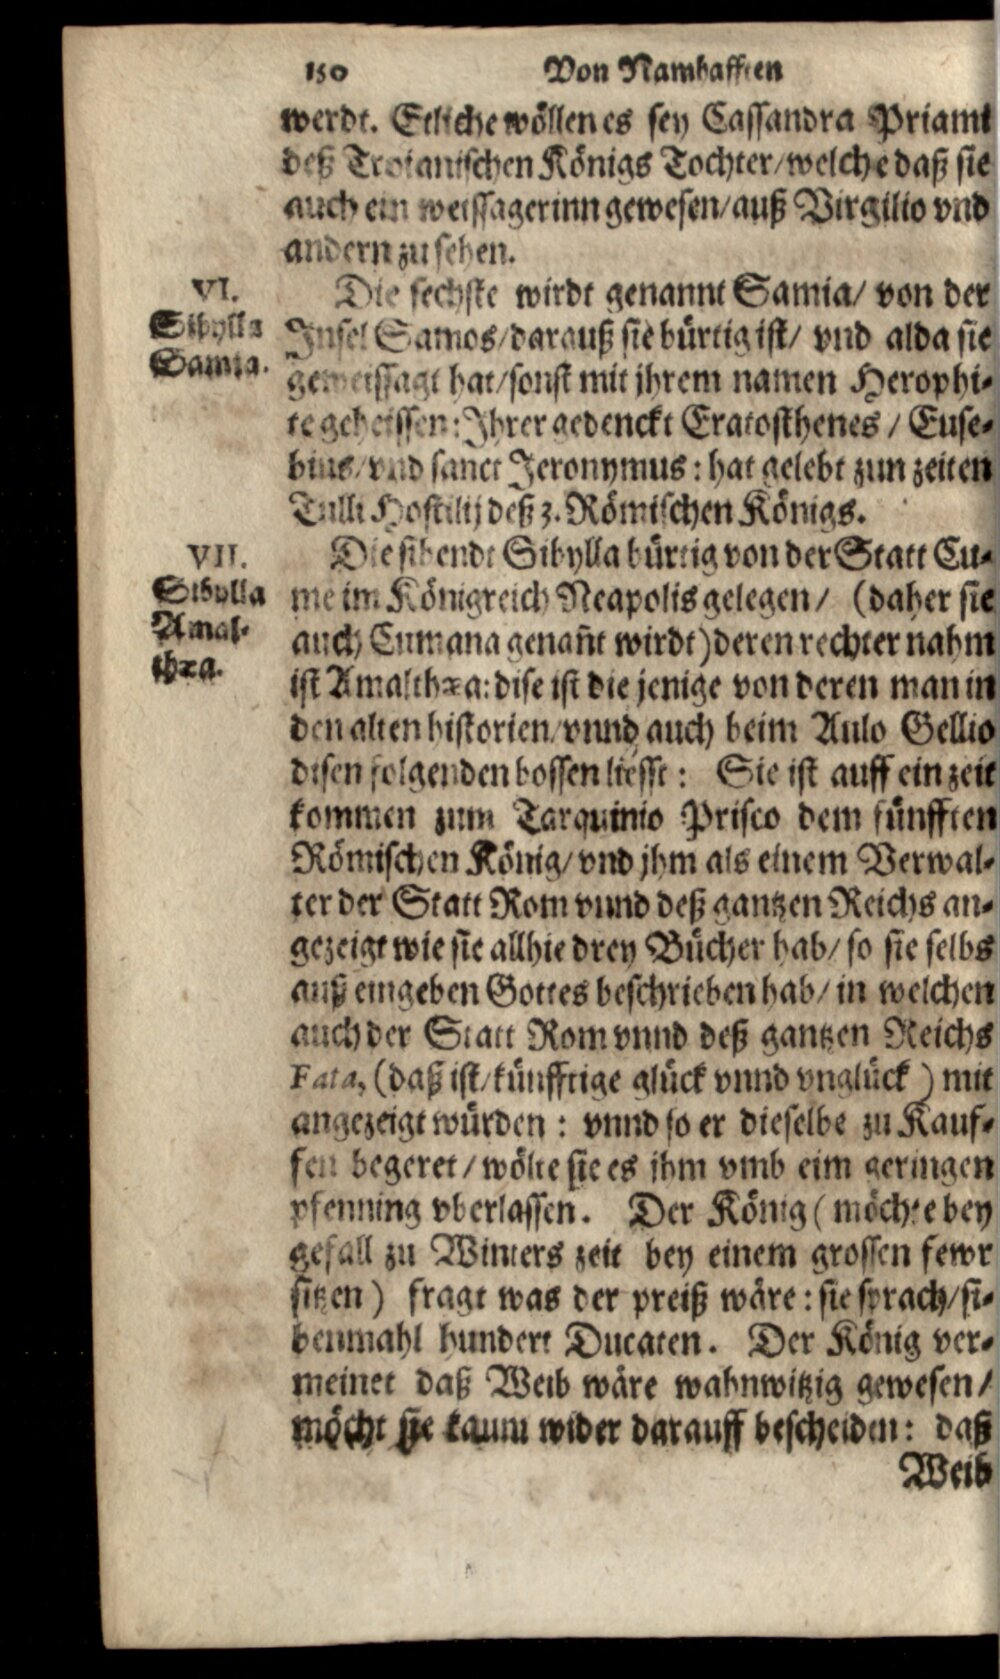 150 Von Namhafften
werdt. Etliche wöllen es sey Cassandra Priami
deß Troianischen Königs Tochter/ welche daß sie
auch ein weissagerinn gewesen/ auß Virgilio vnd
andern zu sehen.
VI.
Sibylla
Samia.
Die sechste wirdt genannt Samia/ von der
Insel Samos/ darauß sie bürtig ist/ vnd alda sie
geweissagt hat/ sonst mit jhrem namen Herophi-
te geheissen: Ihrer gedenckt Eratosthenes / Euse-
bius/ vnd sanct Jeronymus: hat gelebt zun zeiten
Tulli Hostilij deß 3. Römischen Königs.
VII.
Sibylla
Amal-
thæa.
Die sibendt Sibylla bürtig von der Statt Cu-
me im Königreich Neapolis gelegen/ (daher sie
auch Cumana genañt wirdt) deren rechter nahm
ist Amalthæa: dise ist die jenige von deren man in
den alten historien/ vnnd auch beim Aulo Gellio
disen folgenden bossen liesst: Sie ist auff ein zeit
kommen zum Tarquinio Prisco dem fünfften
Römischen König/ vnd jhm als einem Verwal-
ter der Statt Rom vnnd deß gantzen Reichs an-
gezeigt wie sie allhie drey Bücher hab/ so sie selbs
auß eingeben Gottes beschrieben hab/ in welchen
auch der Statt Rom vnnd deß gantzen Reichs
Fata, (daß ist/ künfftige glück vnnd vnglück) mit
angezeigt würden: vnnd so er dieselbe zu Kauf-
fen begeret/ wölte sie es jhm vmb eim geringen
pfenning vberlassen. Der König (möchte bey
gefall zu Winters zeit bey einem grossen fewr
sitzen) fragt was der preiß wäre: sie sprach/ si-
benmahl hundert Ducaten. Der König ver-
meinet daß Weib wäre wahnwitzig gewesen/
möcht sie kaum wider darauff bescheiden: daß
Weib